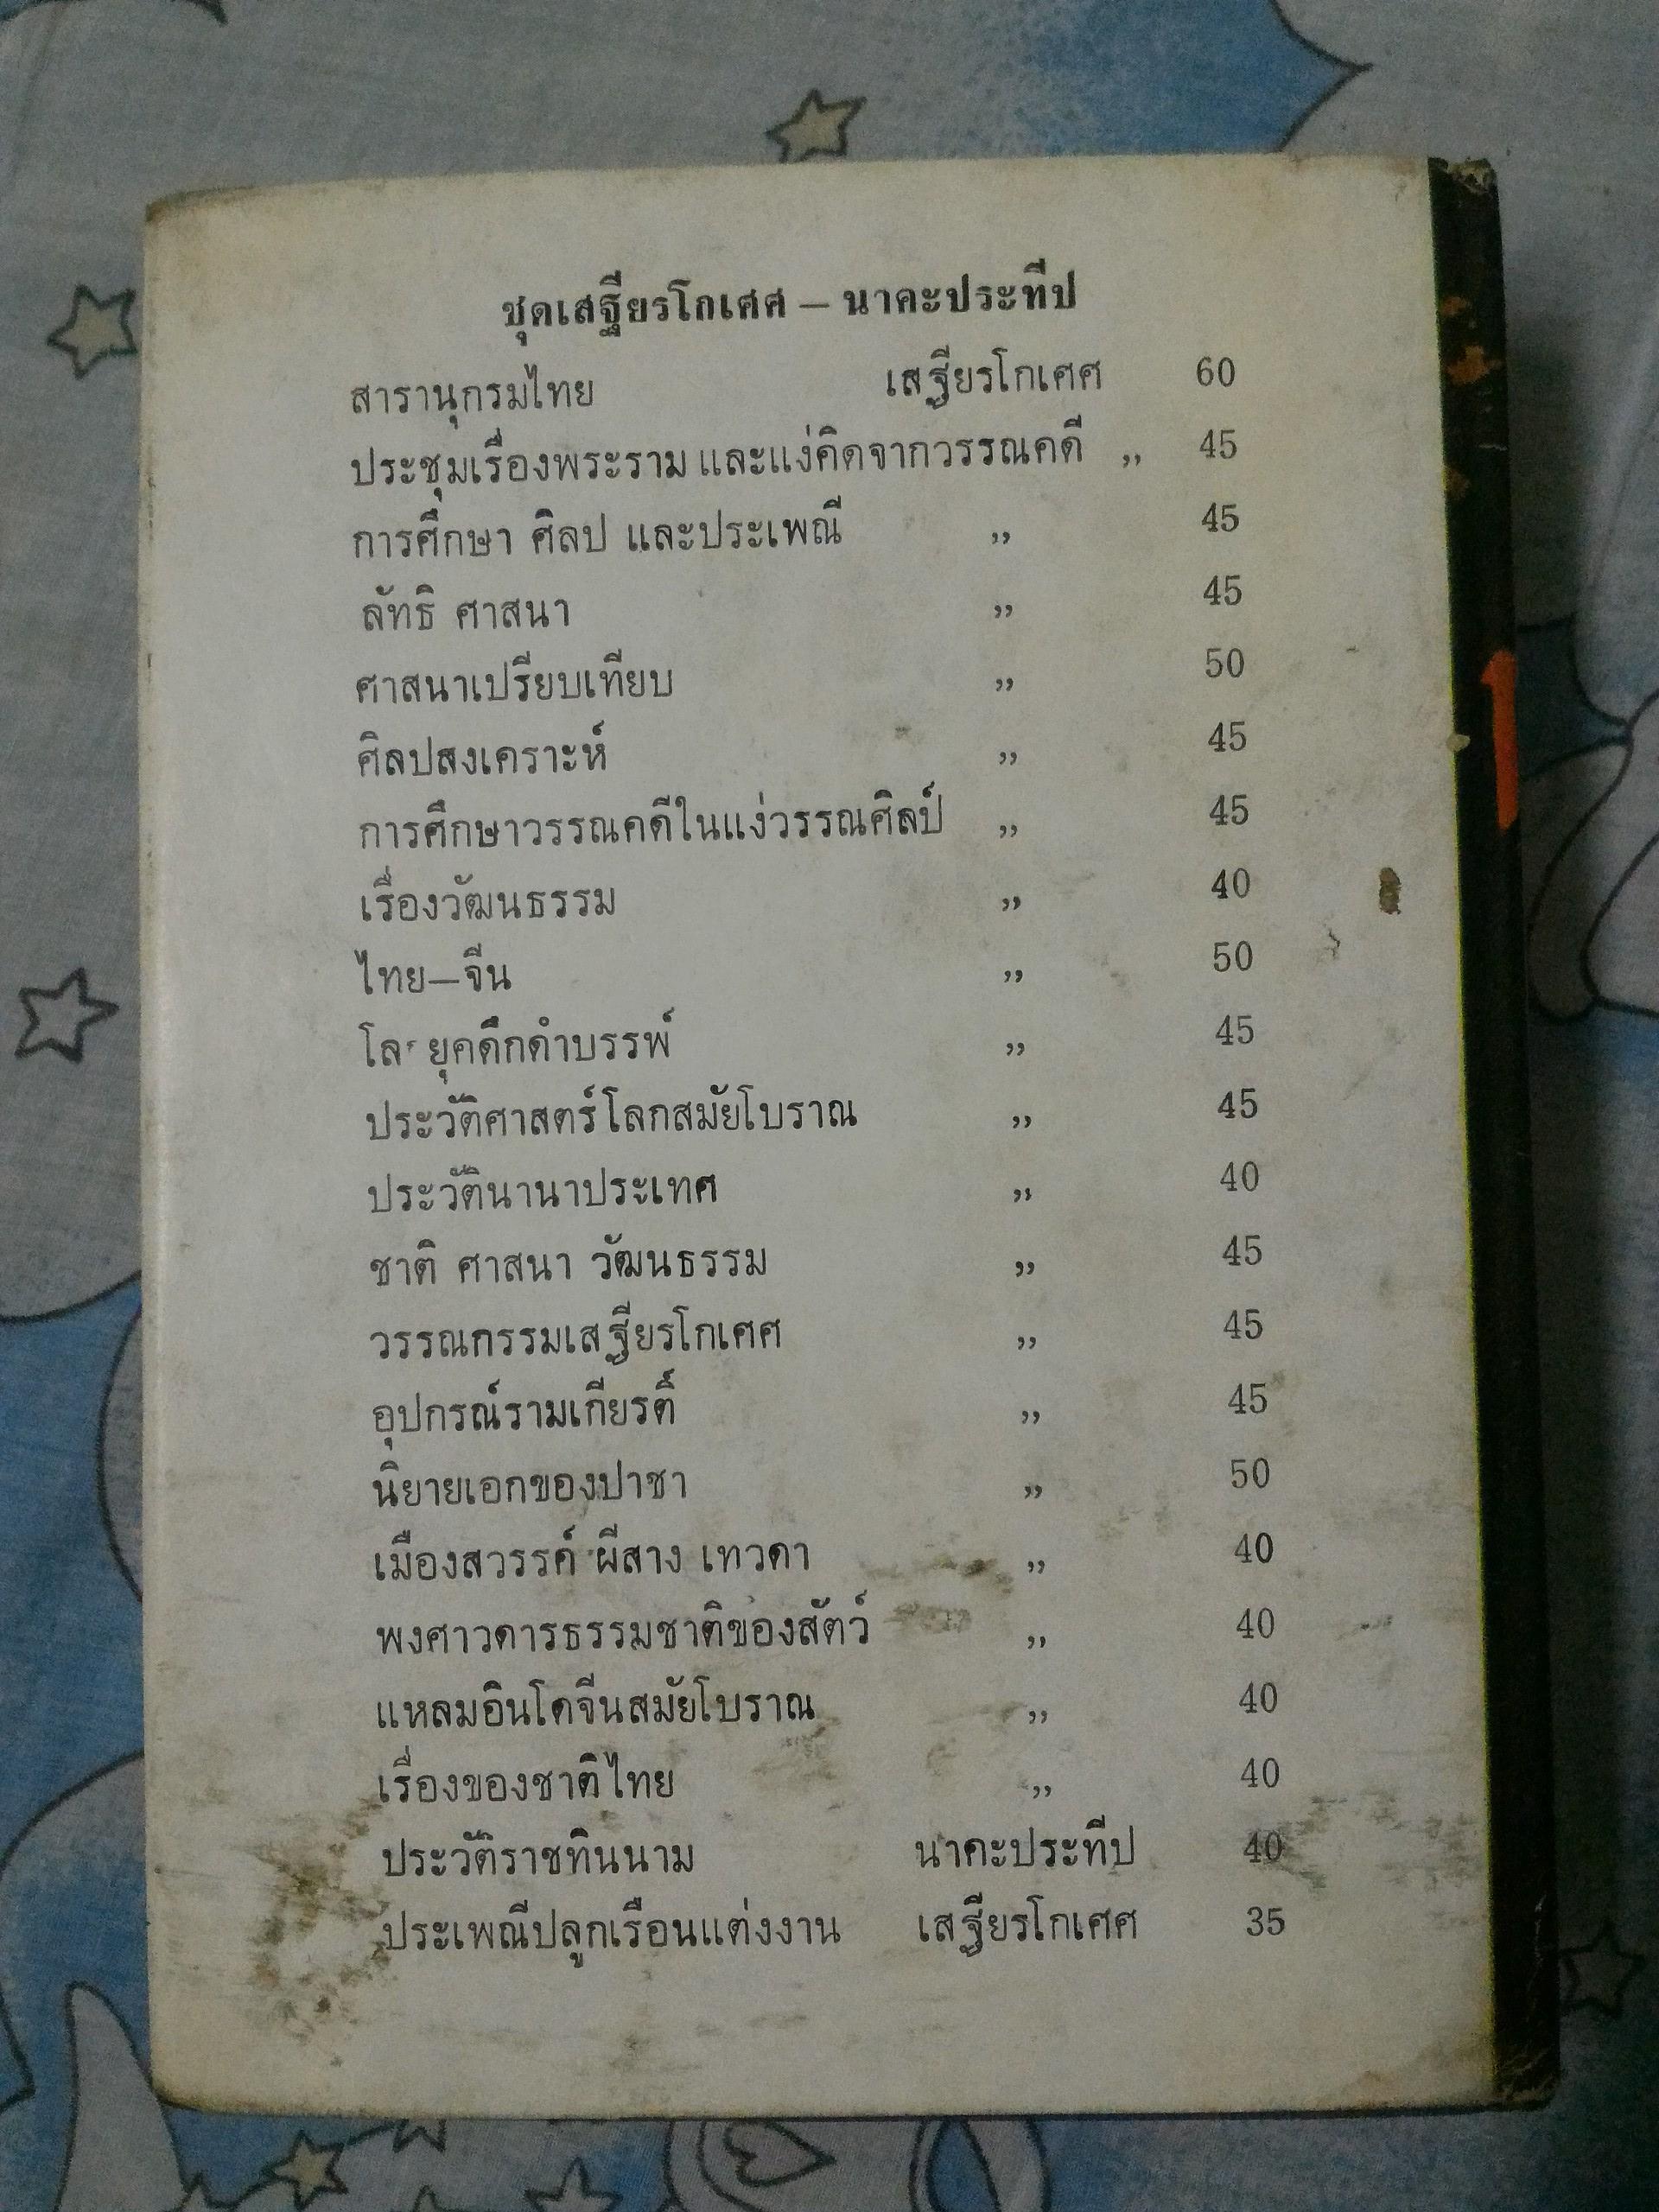 ชุดเสฐียรโกเศศ – นาคะประทีป
สารานุกรมไทย เสฐียรโกเศศ 60
ประชุมเรื่องพระราม และแง่คิดจากวรรณคดี ,, 45
การศึกษา ศิลป และประเพณี ,, 45
ลัทธิ ศาสนา ,, 45
ศาสนาเปรียบเทียบ ,, 50
ศิลปสงเคราะห์ ,, 45
การศึกษาวรรณคดีในแง่วรรณศิลป์ ,, 45
เรื่องวัฒนธรรม ,, 40
ไทย—จีน ,, 50
ยุคดึกดำบรรพ์ ,, 45
ประวัติศาสตร์โลกสมัยโบราณ ,, 45
ประวัตินานาประเทศ ,, 40
ชาติ ศาสนา วัฒนธรรม ,, 45
วรรณกรรมเสฐียรโกเศศ ,, 45
อุปกรณ์รามเกียรติ์ ,, 45
นิยายเอกของปาชา ,, 50
เมืองสวรรค์ ผีสาง เทวดา ,, 40
พงศาวดารธรรมชาติของสัตว์ ,, 40
แหลมอินโดจีนสมัยโบราณ ,, 40
เรื่องของชาติไทย ,, 40
ประวัติราชทินนาม นาคะประทีป 40
ประเพณีปลูกเรือนแต่งงาน เสฐียรโกเศศ 35